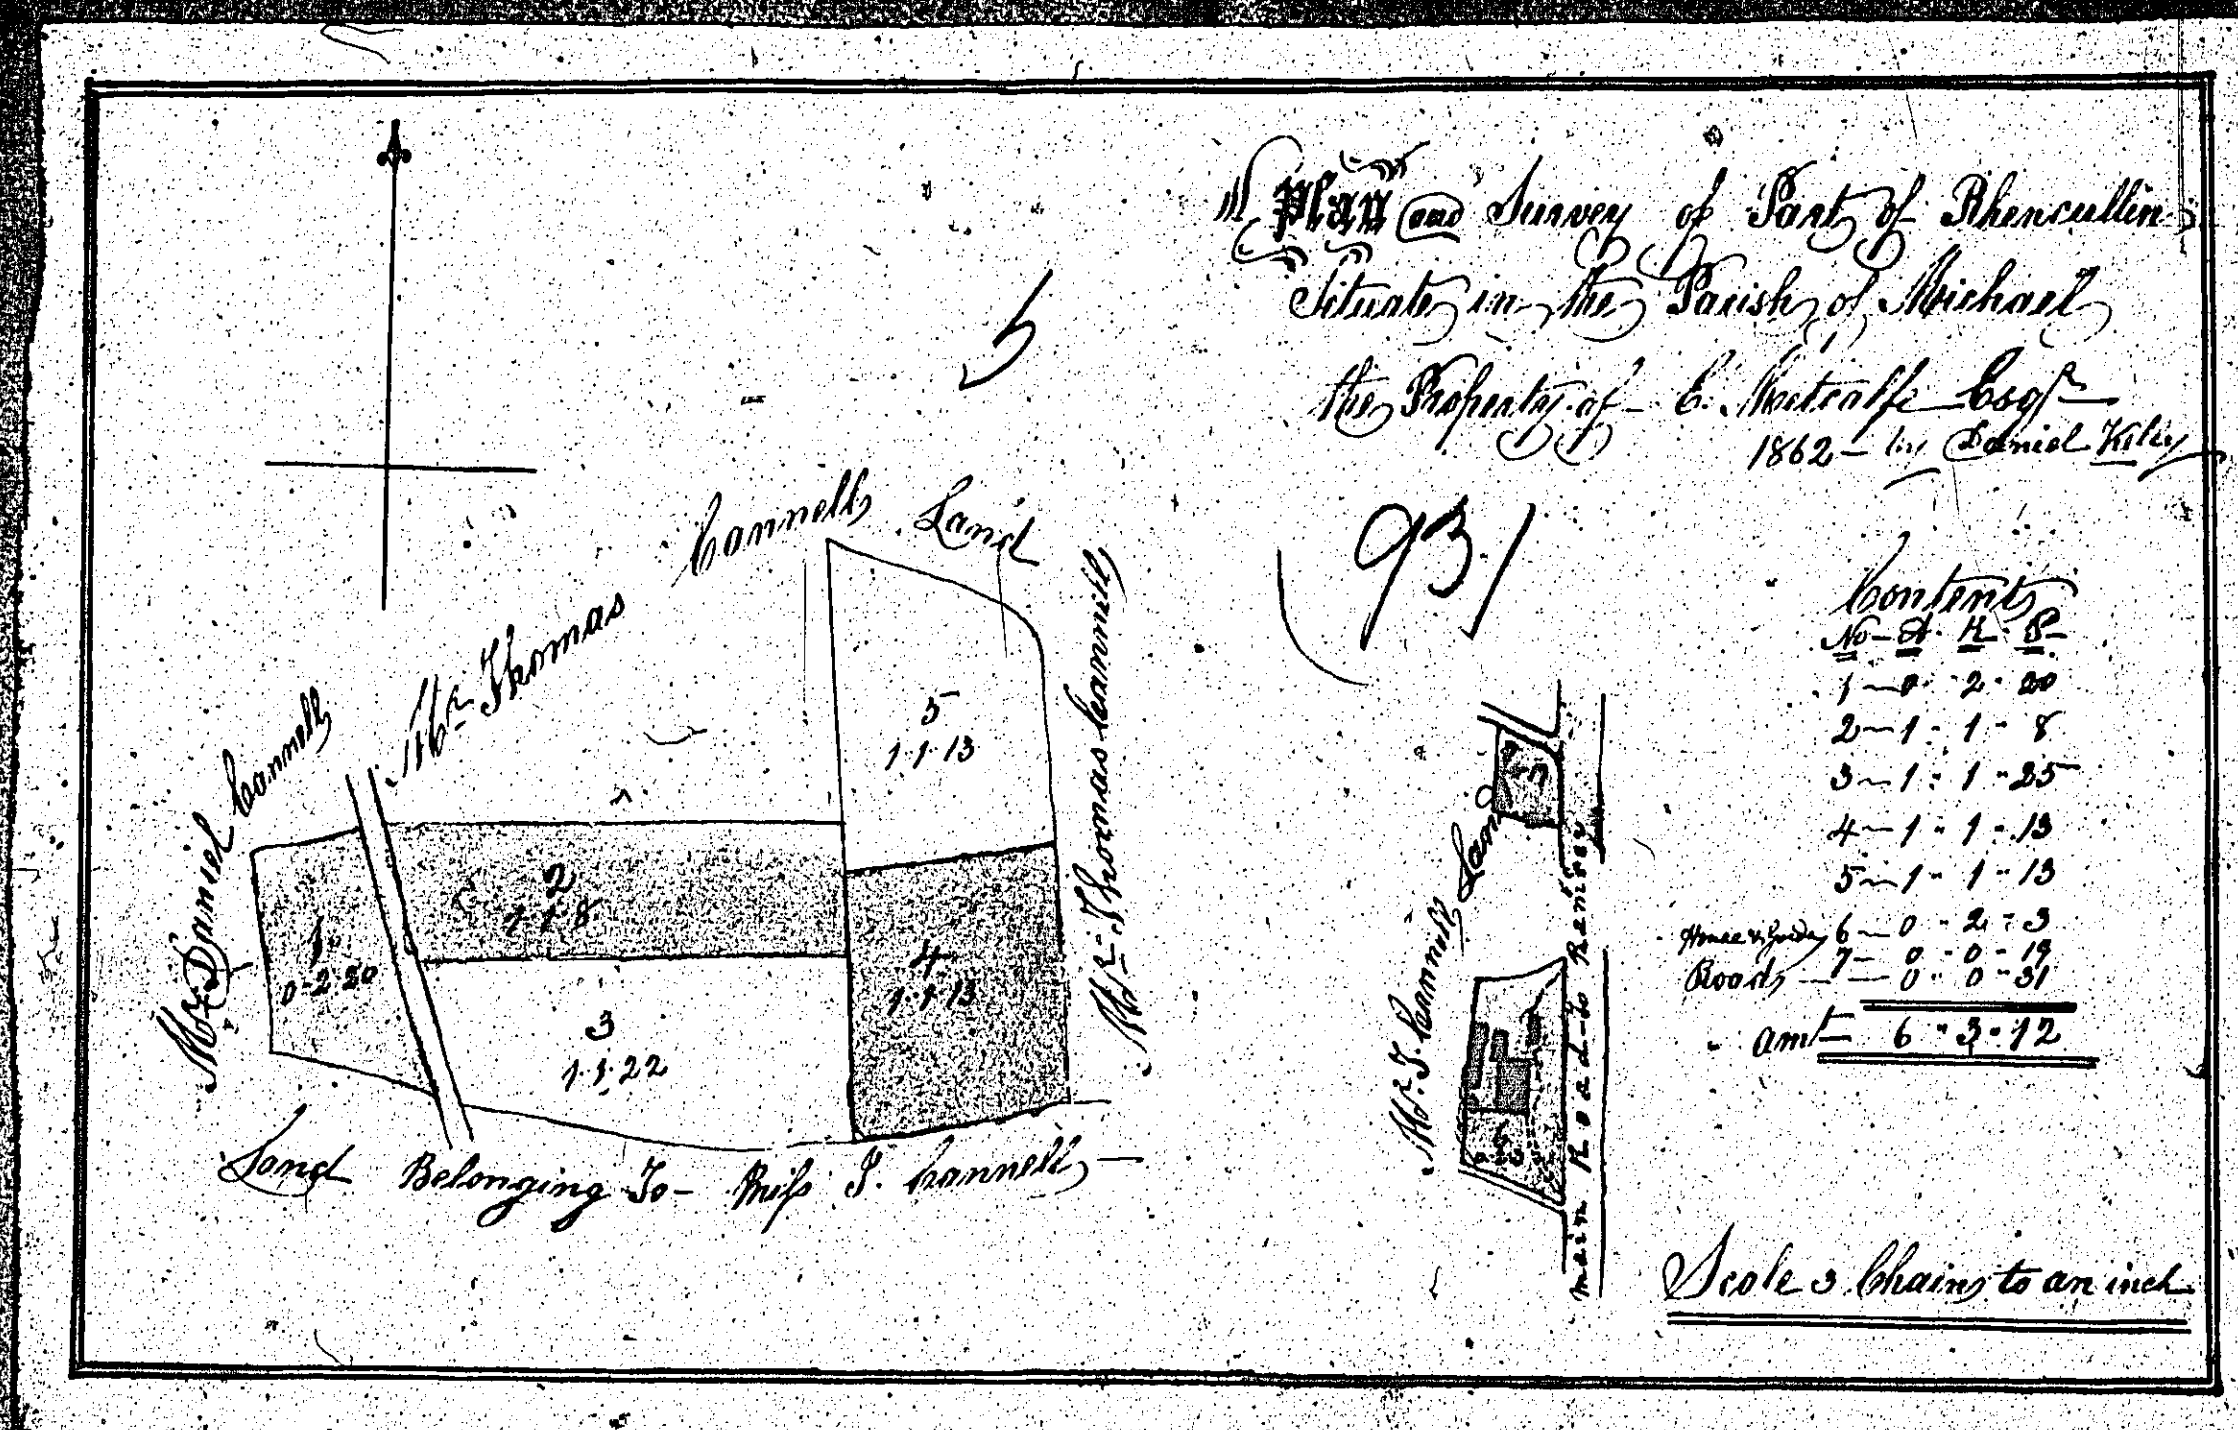 A Plan and Survey of Part of Rhencullin
Situate in the Parish of Michael
the Property of E. Metcalfe Esqr
1862 - by Daniel Kiley
5
93/1
Cannells Land
Mr Thomas
Mr Daniel Cannell
Mr Thomas Cannell
5
1·1·13
2
1·1·8
1
0·2·20
4
1·1·13
3
1·1·22
Land Belonging To - Miss J. Cannell
Mr J. Cannell Land
7
6
main Road to Ramsey
Contents
No - A · R · P
1 - 0 · 2 · 20
2 - 1 · 1 · 8
3 - 1 · 1 · 25
4 - 1 · 1 · 13
5 - 1 · 1 · 13
House & 6 - 0 · 2 · 3
7 - 0 · 0 · 19
Roads - 0 · 0 · 31
amt 6 · 3 · 12
Scale 3 Chains to an inch